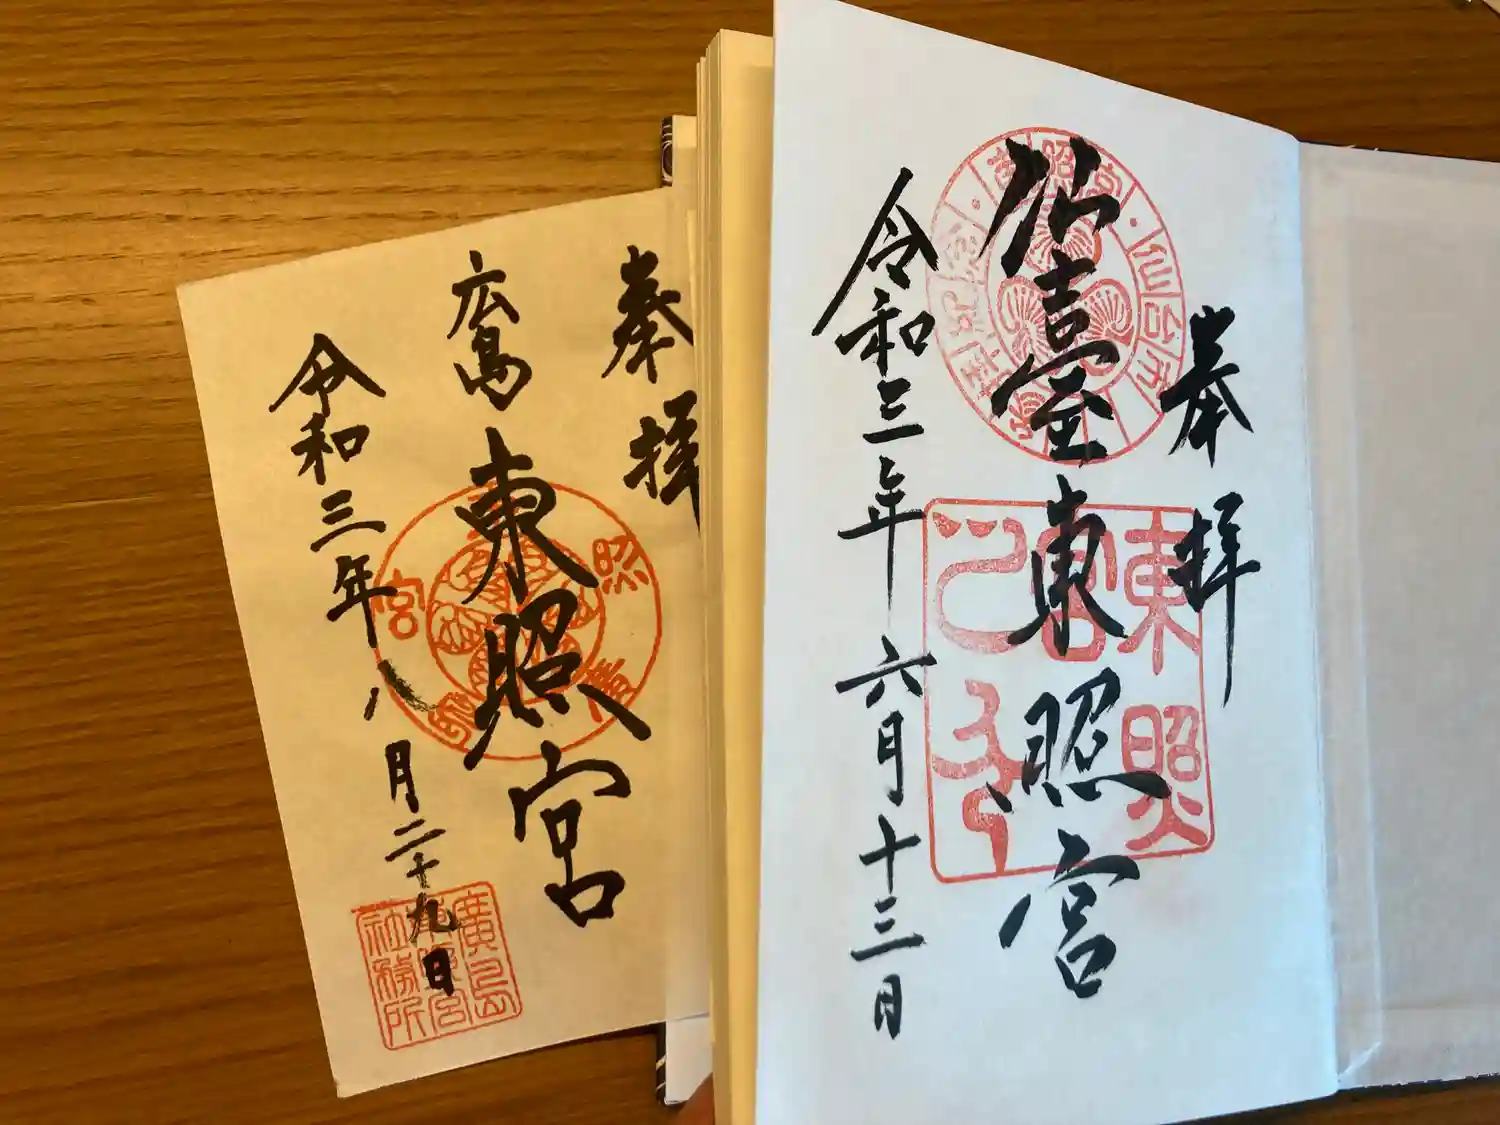 奉拝
仙臺東照宮
令和三年六月十三日
東照宮
奉拝
広島東照宮
令和三年八月二十九日
照宮
廣島東照宮社務所